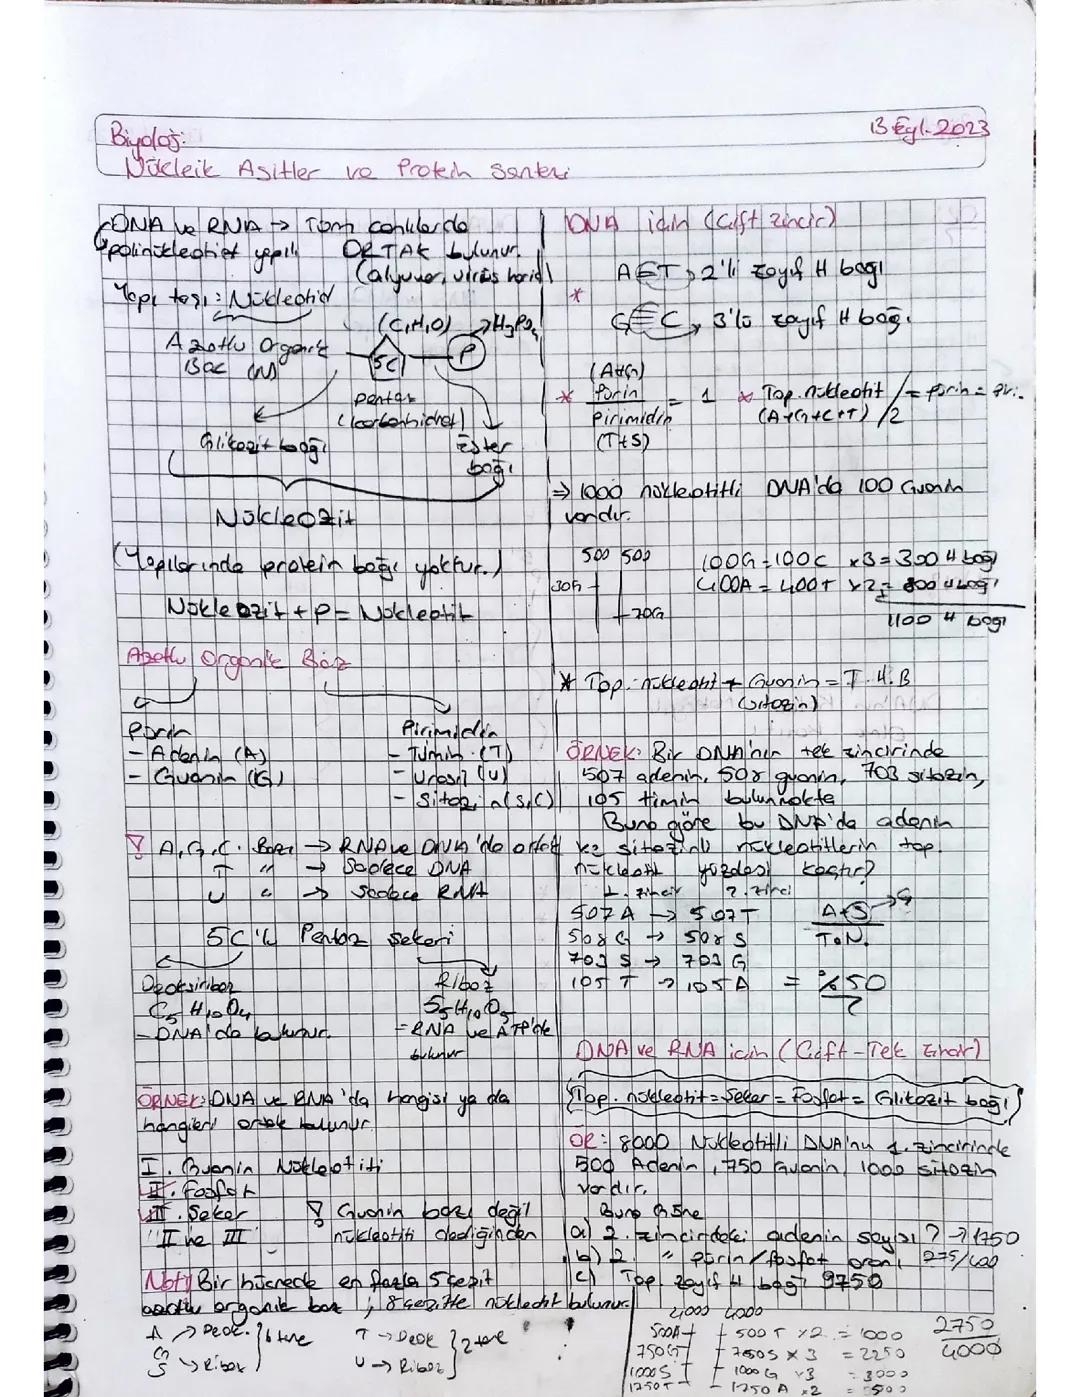 Biyoloji
13 Eyl. 2023
Nükleik Asitler ve Protein Sentezi
DNA ve RNA → Tüm canlılarda
polinükleotiet yapılı ORTAK bulunur.
(alyuvar, virüs hariç)
Yapı taşı: Nükleotid
(C,H,O) → H3PO4
Azotlu Organik
Baz (N)
5C
P
pentoz
(karbonhidrat)
Glikozit bağı
Ester
bağı
Nükleozit
(Yapılarında protein bağı yoktur.)
Nükleozit + P = Nükleotit
Azotlu Organik Baz
Pürin
- Adenin (A)
- Guanin (G)
Pirimidin
- Timin (T)
- Urasil (U)
- Sitozin (S,C)
! A, G, C. Bazı → RNA ve DNA'da ortak
T " → Sadece DNA
U " → Sadece RNA
5C'li Pentoz şekeri
Deoksiriboz
C5 H10 O4
- DNA'da bulunur.
Riboz
5 5 H10 O5
- RNA ve ATP'de
bulunur
ÖRNEK: DNA ve RNA'da hangisi ya da
hangileri ortak bulunur.
I. Guanin Nükleotiti
II. Fosfat
III. Şeker
"II ve III"
! Guanin bazı değil
nükleotiti dediğinden
Not! Bir hücrede en fazla 5 çeşit
azotlu organik baz, 8 çeşitte nükleotit bulunur.
A → Deok.
G
S → Riboz
6 tane
T → Deok
U → Riboz
2 tane
DNA için (Çift zincir)
A = T → 2'li zayıf H bağı
*
G ≡ C → 3'lü zayıf H bağı
(A+G)
* Pürin / Pirimidin = 1
(T+S)
* Top. nükleotit / 2 = pürin = pri.
(A+G+C+T)
⇒ 1000 nükleotitli DNA'da 100 Guanin
vardır.
500 500
30G
70G
100G = 100C x3 = 300 H bağı
400A = 400T x2 = 800 H bağı
1100 H bağı
* Top. nükleotit + Guanin = T.H.B
(sitozin)
ÖRNEK: Bir DNA'nın tek zincirinde
507 adenin, 508 guanin, 703 sitozin,
105 timin bulunmakta
Buna göre bu DNA'da adenin
ve sitozinli nükleotitlerin top.
nükleotit yüzdesi kaçtır?
1. zincir 2. zinci
507A → 507T
508G → 508S
703S → 703G
105T → 105A
A+S → G
T.N.
= %50
DNA ve RNA için (Çift - Tek Zincir)
Top. nükleotit = Şeker = Fosfat = Glikozit bağı
ÖR: 8000 Nükleotitli DNA'nın 1. zincirinde
500 Adenin, 750 Guanin, 1000 sitozin
vardır.
Buna Göre
a) 2. zincirdeki adenin sayısı? → 1750
b) 2. " pürin/fosfat oranı 275/400
c) Top. zayıf H bağı 9750
4000 4000
500A 500T x2 = 1000
750G 750S x3 = 2250
1000S 1000G x3 = 3000
1750T 1750A x2 = 3500
2750
4000